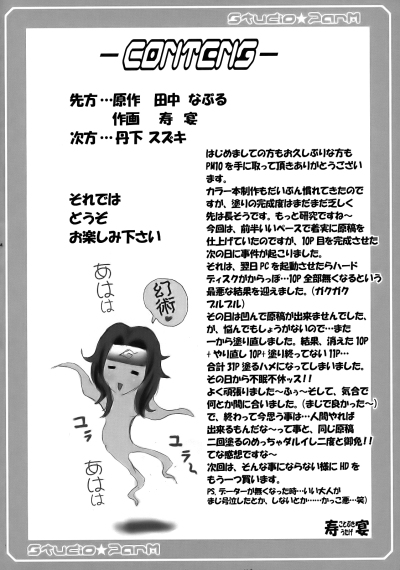 Studio★PanM
-CONTENS-
先方…原作　田中 なぷる
作画　寿　宴
次方…丹下 スズキ
それでは
どうぞ
お楽しみ下さい
はじめましての方もお久しぶりな方も
PM10を手に取って頂きありがとうござい
ます。
カラー本制作もだいぶん慣れてきたので
すが、塗りの完成度はまだまだ乏しく
先は長そうです。もっと研究ですね～
今回は、前半いいペースで着実に原稿を
仕上げていたのですが、10P目を完成させた
次の日に事件が起こりました。
それは、翌日PCを起動させたらハード
ディスクがからっぽ…10P全部無くなるという
最悪な結果を迎えました。(ガクガク
ブルブル)
その日は凹んで原稿が出来ませんでした
が、悩んでもしょうがないので…また
一から塗り直しました。結果、消えた10P
+やり直し10P+塗り終ってない11P…
合計31P塗るハメになってしまいました。
その日から不眠不休ッス!!
よく頑張りました～ふぅ～そして、気合で
何とか間に合いました。(まじで良かった～)
で、終わって今思う事は…人間やれば
出来るもんだな～って事と、同じ原稿
二回塗るのめっちゃダルイし二度と御免!!
てな感想ですな～
次回は、そんな事にならない様にHDを
もう一つ買います。
PS.データーが無くなった時…いい大人が
まじ号泣したとか、しないとか……かっこ悪…笑)
寿 ことぶき 宴 うたげ
あはは
幻術
コラ
コラ
あはは
Studio★PanM